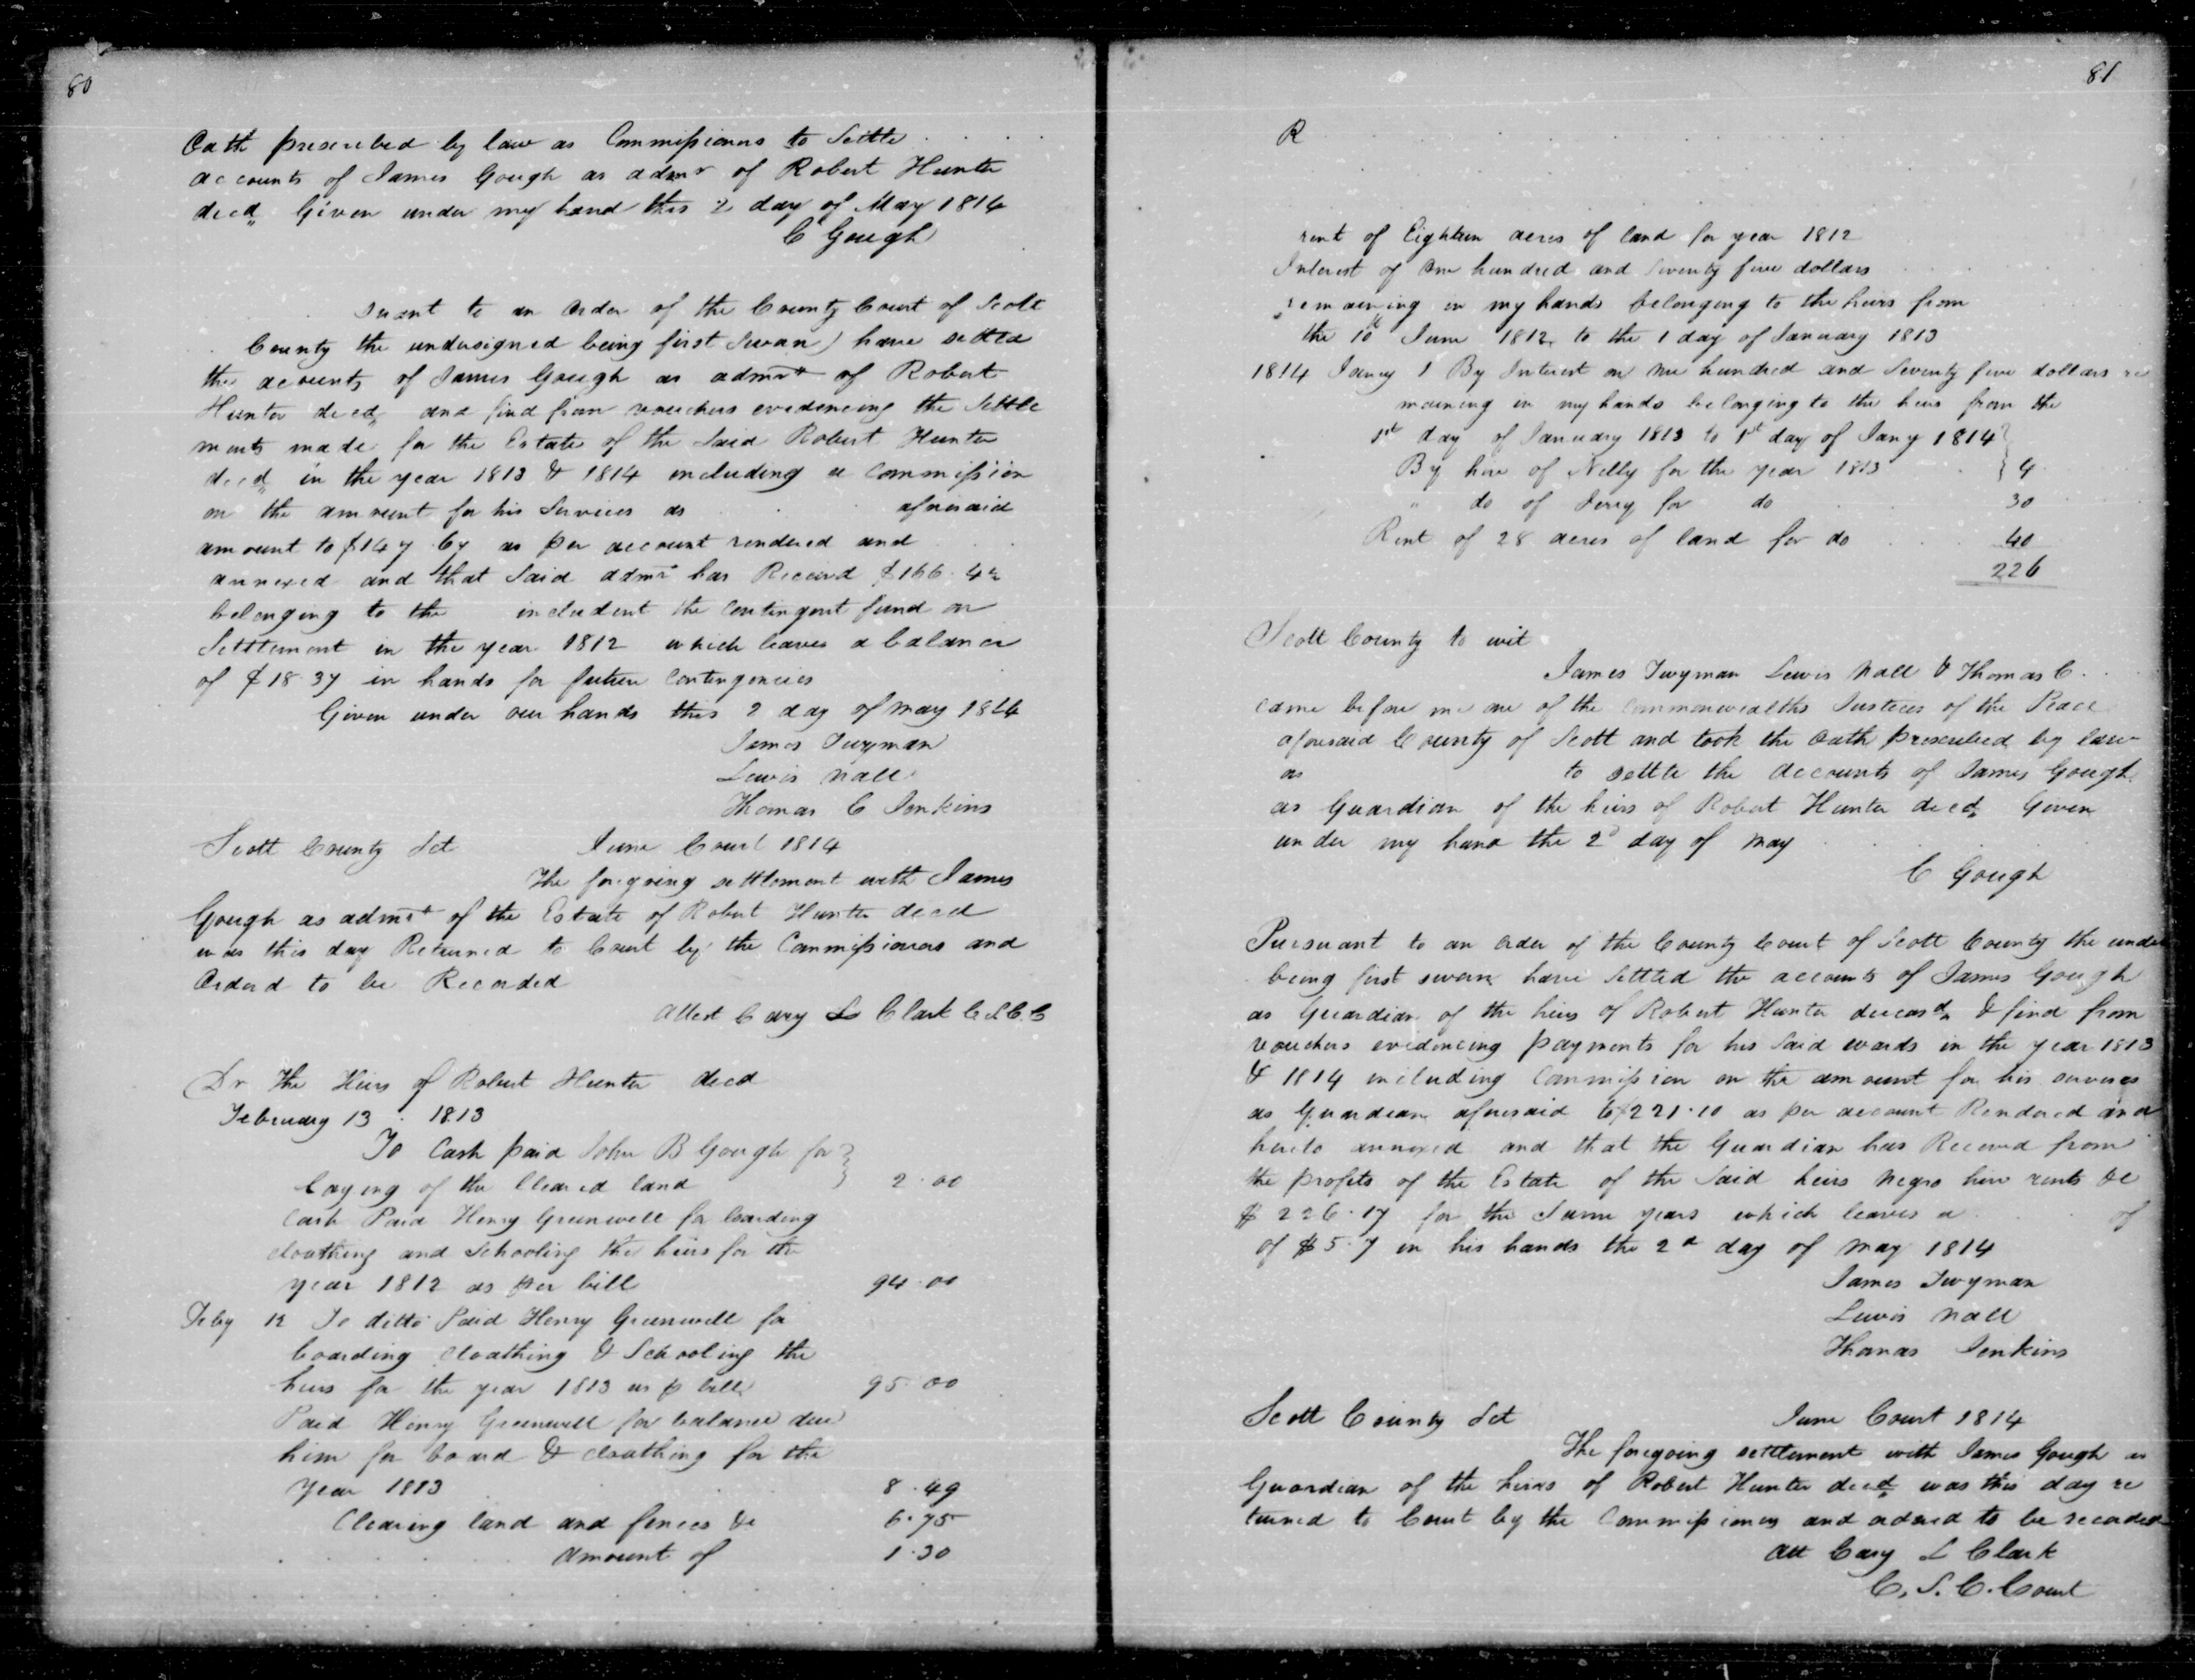 80
Oath prescribed by law as Commissioners to Settle
accounts of James Gough as admr of Robert Hunter
decd Given under my hand this 2 day of May 1814
C Gough
suant to an Order of the County Court of Scott
County the undersigned being first Swan have settled
the accounts of James Gough as admr of Robert
Hunter decd and find from vouchers evidencing the Settle
ments made for the Estate of the Said Robert Hunter
decd in the year 1813 & 1814 including a Commission
on the amount for his Services as aforesaid
amount to $147.67 as per account rendered and
annexed and that Said admr has Received $166.42
belonging to the includent the contingent fund on
Settlement in the year 1812 which leaves a balance
of $18.37 in hands for future Contingencies
Given under our hands this 2 day of may 1814
James Twyman
Lewis Nall
Thomas C Jenkins
Scott County Sct June Court 1814
The foregoing settlement with James
Gough as admr of the Estate of Robert Hunter decd
was this day Returned to Court by the Commissioners and
Orderd to be Recorded
Attest Cary L Clark C S C C
Dr The Heirs of Robert Hunter decd
February 13 1813
To Cash paid John B Gough for
laying of the Cleared land 2.00
Cash Paid Henry Greenwell for boarding
cloathing and Schooling the heirs for the
year 1812 as per bill 94.00
Feby 12 To ditto Paid Henry Greenwell for
boarding cloathing & Schooling the
heirs for the year 1813 as p bill 95.00
Paid Henry Greenwell for balance due
him for board & cloathing for the
Year 1813 8.49
Clearing land and fences &c 6.75
amount of 1.30
81
R
rent of Eighteen acres of land for year 1812
Interest of One hundred and Seventy five dollars
remaining in my hands belonging to the heirs from
the 10th June 1812 to the 1 day of January 1813
1814 Jany 1 By Interest on one hundred and Seventy five dollars re
maining in my hands belonging to the heirs from the
1st day of January 1813 to 1st day of Jany 1814
By hire of Nelly for the year 1813 4
" do of Jerry for do 30
Rent of 28 acres of land for do 40
226
Scott County to wit
James Twyman Lewis Nall & Thomas C.
came before me one of the Commonwealths Justices of the Peace
aforesaid County of Scott and took the Oath prescribed by law
as to settle the Accounts of James Gough
as Guardian of the heirs of Robert Hunter decd Given
under my hand the 2d day of May
C Gough
Pursuant to an Order of the County Court of Scott County the under
being first sworn have Settled the accounts of James Gough
as Guardian of the heirs of Robert Hunter deceasd & find from
vouchers evidencing payments for his Said wards in the year 1813
& 1814 including Commission on the amount for his services
as Guardian aforesaid to $221.10 as per account Rendered and
hereto annexed and that the Guardian has Received from
the profits of the Estate of the Said heirs Negro hire rents &c
$226.17 for the Same years which leaves a of
of $5.7 in his hands the 2d day of May 1814
James Twyman
Lewis Nall
Thomas Jenkins
Scott County Sct June Court 1814
The foregoing settlement with James Gough as
Guardian of the heirs of Robert Hunter decd was this day re
turned to Court by the Commissioners and ordered to be recorded
Att Cary L Clark
C. S. C. Court